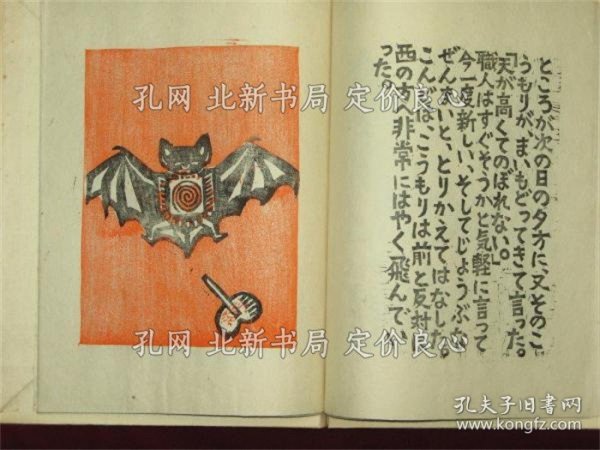 ところが次の日の夕方に、又そのこ
うもりが、まいもどってきて言った。
「天が高くてのぼれない。」
職人はすぐそうかと気軽に言って
今一度新しい、そしてじょうぶな
ぜんまいと、とりかえてはなした。
こんどは、こうもりは前と反対に
西の方へ非常にはやく飛んでい
った。
孔网 北新书局 定价良心
孔网 北新书局 定价良心
孔夫子旧书网
www.kongfz.com